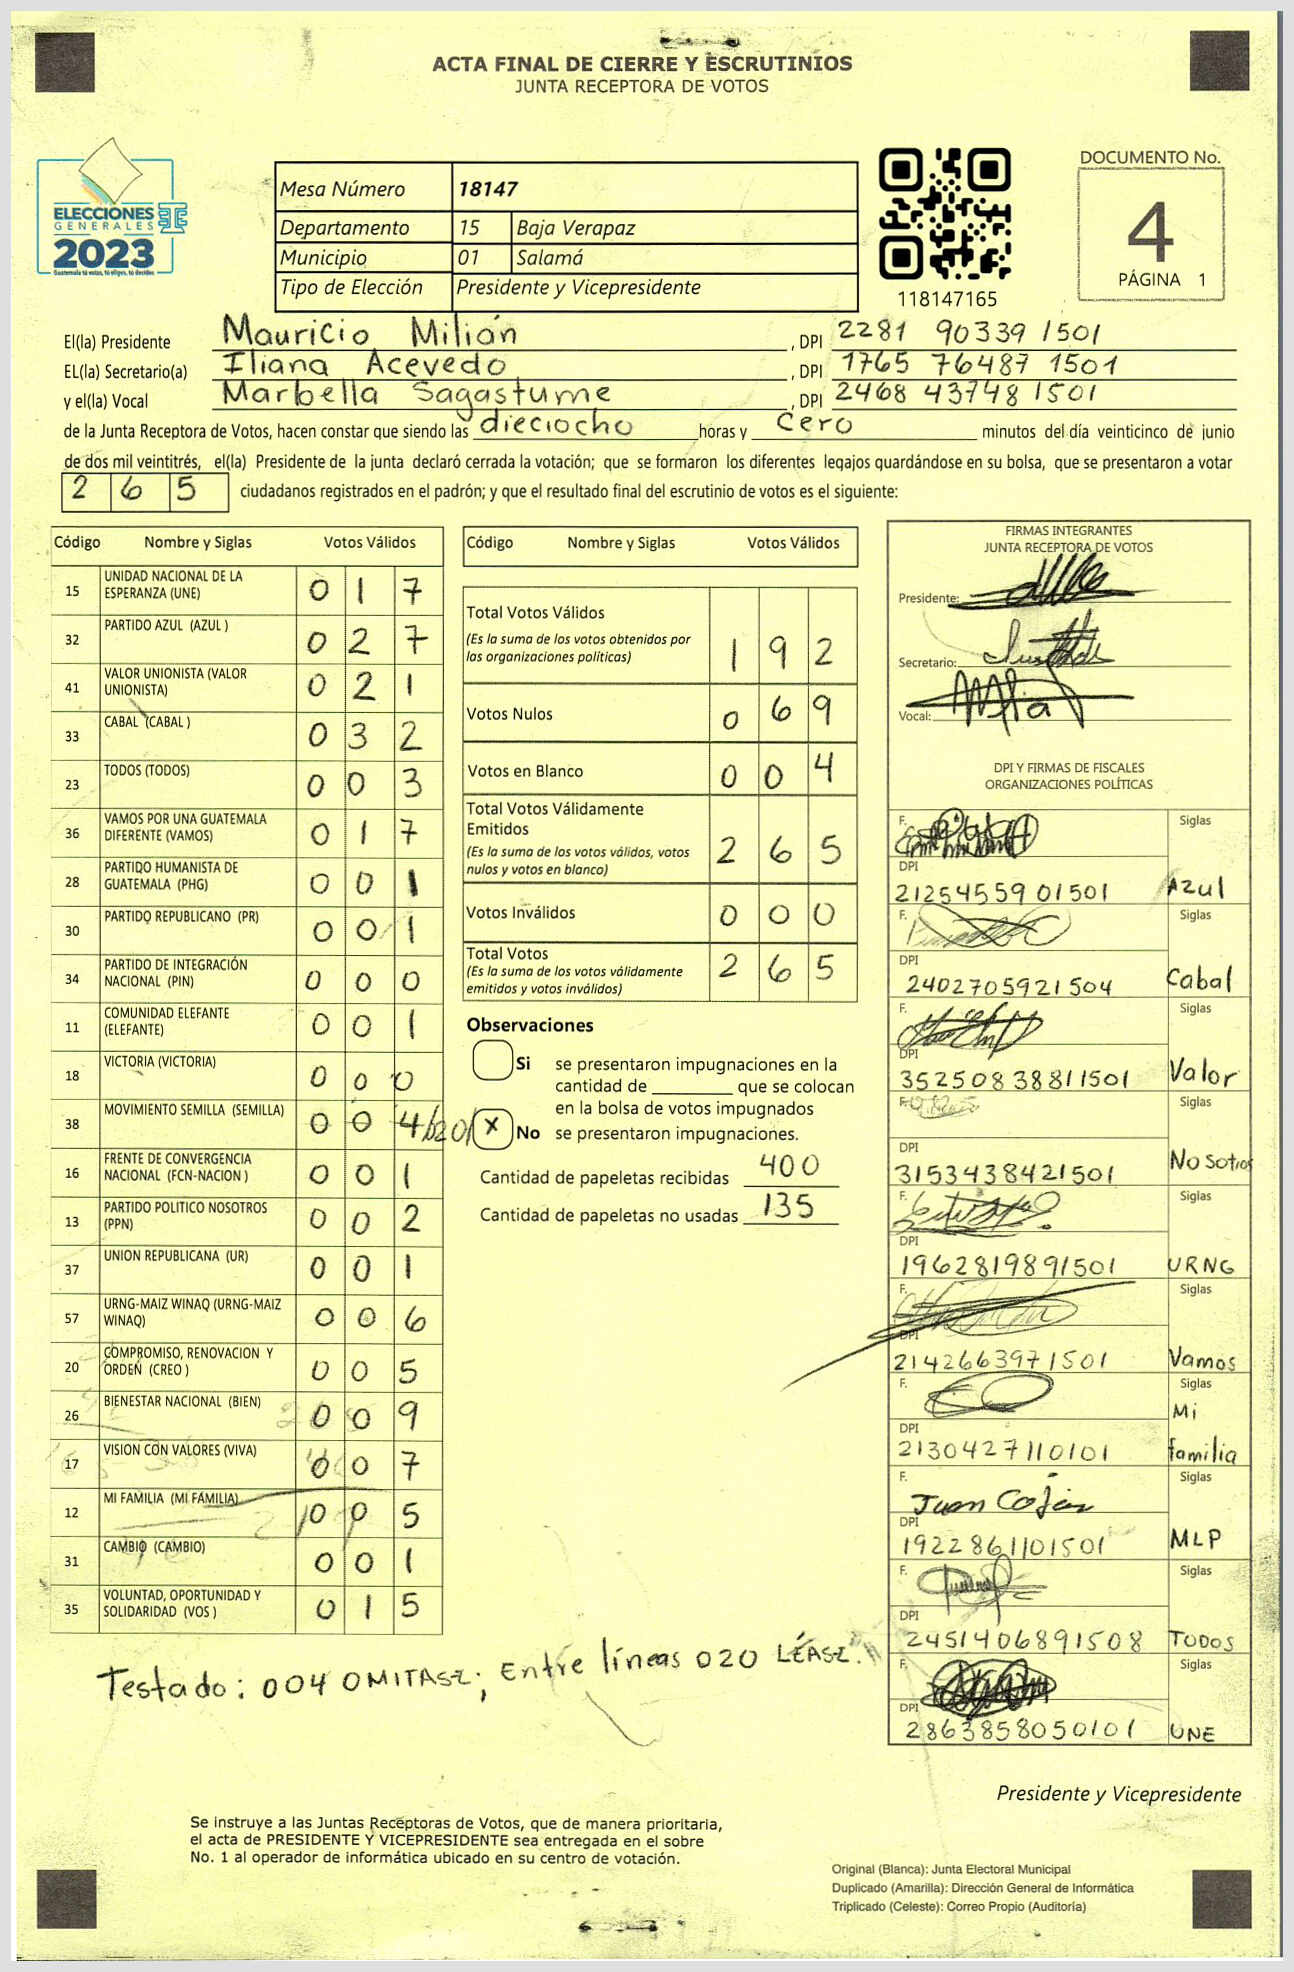 ACTA FINAL DE CIERRE Y ESCRUTINIOS
JUNTA RECEPTORA DE VOTOS
ELECCIONES
GENERALES
2023
Guatemala tú votas, tú eliges, tú decides
Mesa Número 18147
Departamento 15 Baja Verapaz
Municipio 01 Salamá
Tipo de Elección Presidente y Vicepresidente
118147165
DOCUMENTO No.
4
PÁGINA 1
El(la) Presidente Mauricio Milián, DPI 2281 90339 1501
EL(la) Secretario(a) Iliana Acevedo, DPI 1765 76487 1501
y el(la) Vocal Marbella Sagastume, DPI 2468 43748 1501
de la Junta Receptora de Votos, hacen constar que siendo las dieciocho horas y cero minutos del día veinticinco de junio
de dos mil veintitrés, el(la) Presidente de la junta declaró cerrada la votación; que se formaron los diferentes legajos guardándose en su bolsa, que se presentaron a votar
265 ciudadanos registrados en el padrón; y que el resultado final del escrutinio de votos es el siguiente:
Código Nombre y Siglas Votos Válidos
15 UNIDAD NACIONAL DE LA ESPERANZA (UNE) 017
32 PARTIDO AZUL (AZUL ) 027
41 VALOR UNIONISTA (VALOR UNIONISTA) 021
33 CABAL (CABAL ) 032
23 TODOS (TODOS) 003
36 VAMOS POR UNA GUATEMALA DIFERENTE (VAMOS) 017
28 PARTIDO HUMANISTA DE GUATEMALA (PHG) 001
30 PARTIDO REPUBLICANO (PR) 001
34 PARTIDO DE INTEGRACIÓN NACIONAL (PIN) 000
11 COMUNIDAD ELEFANTE (ELEFANTE) 001
18 VICTORIA (VICTORIA) 000
38 MOVIMIENTO SEMILLA (SEMILLA) 004/020/
16 FRENTE DE CONVERGENCIA NACIONAL (FCN-NACION ) 001
13 PARTIDO POLITICO NOSOTROS (PPN) 002
37 UNION REPUBLICANA (UR) 001
57 URNG-MAIZ WINAQ (URNG-MAIZ WINAQ) 006
20 COMPROMISO, RENOVACION Y ORDEN (CREO ) 005
26 BIENESTAR NACIONAL (BIEN) 009
17 VISION CON VALORES (VIVA) 007
12 MI FAMILIA (MI FAMILIA) 005
31 CAMBIO (CAMBIO) 001
35 VOLUNTAD, OPORTUNIDAD Y SOLIDARIDAD (VOS ) 015
Código Nombre y Siglas Votos Válidos
Total Votos Válidos 192
(Es la suma de los votos obtenidos por
las organizaciones políticas)
Votos Nulos 069
Votos en Blanco 004
Total Votos Válidamente
Emitidos 265
(Es la suma de los votos válidos, votos
nulos y votos en blanco)
Votos Inválidos 000
Total Votos 265
(Es la suma de los votos válidamente
emitidos y votos inválidos)
Observaciones
Si se presentaron impugnaciones en la
cantidad de ________ que se colocan
en la bolsa de votos impugnados
X No se presentaron impugnaciones.
Cantidad de papeletas recibidas 400
Cantidad de papeletas no usadas 135
FIRMAS INTEGRANTES
JUNTA RECEPTORA DE VOTOS
Presidente:
Secretario:
Vocal:
DPI Y FIRMAS DE FISCALES
ORGANIZACIONES POLÍTICAS
F. Siglas
DPI
2125455901501 Azul
F. Siglas
DPI
2402705921504 Cabal
F. Siglas
DPI
35250838811501 Valor
F. Siglas
DPI
3153438421501 Nosotros
F. Siglas
DPI
1962819891501 URNG
F. Siglas
DPI
2142663971501 Vamos
F. Siglas
Mi
DPI
2130427110101 familia
F. Siglas
Juan Cojón
DPI
1922861101501 MLP
F. Siglas
DPI
2451406891508 TODOS
F. Siglas
DPI
2863858050101 UNE
Testado: 004 OMITASE; Entre líneas 020 LÉASE.
Presidente y Vicepresidente
Se instruye a las Juntas Receptoras de Votos, que de manera prioritaria,
el acta de PRESIDENTE Y VICEPRESIDENTE sea entregada en el sobre
No. 1 al operador de informática ubicado en su centro de votación.
Original (Blanca): Junta Electoral Municipal
Duplicado (Amarilla): Dirección General de Informática
Triplicado (Celeste): Correo Propio (Auditoría)